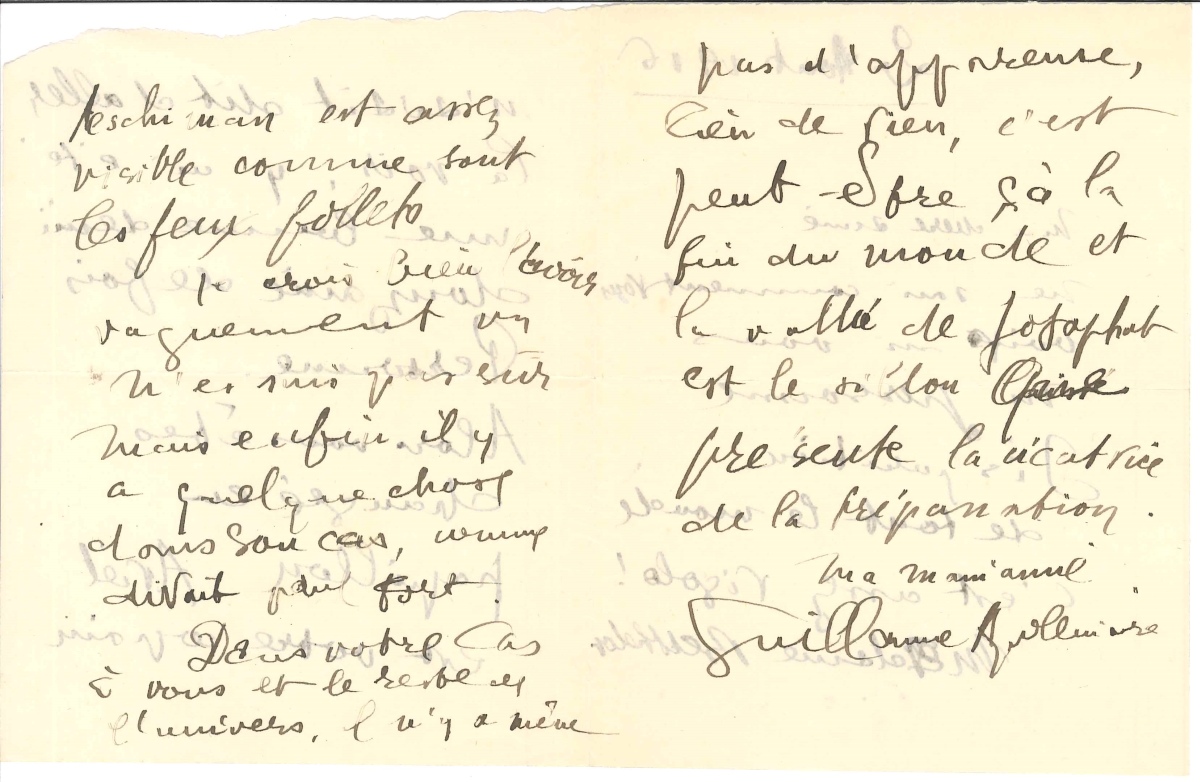 est assez
visible comme sont
les feux follets
je crois bien l'avoir
vaguement vu
n'en suis pas sûr
mais enfin il y
a quelque chose
dans son cas, comme
disait paul fort.
Dans votre cas
à vous et le reste de
l'univers, il n'y a même
pas d'apparence,
rien de rien, c'est
peut-être çà la
fin du monde et
la vallée de Josaphat
est le sillon
présente la cicatrice
de la trépanation.
ma main amie
Guillaume Apollinaire